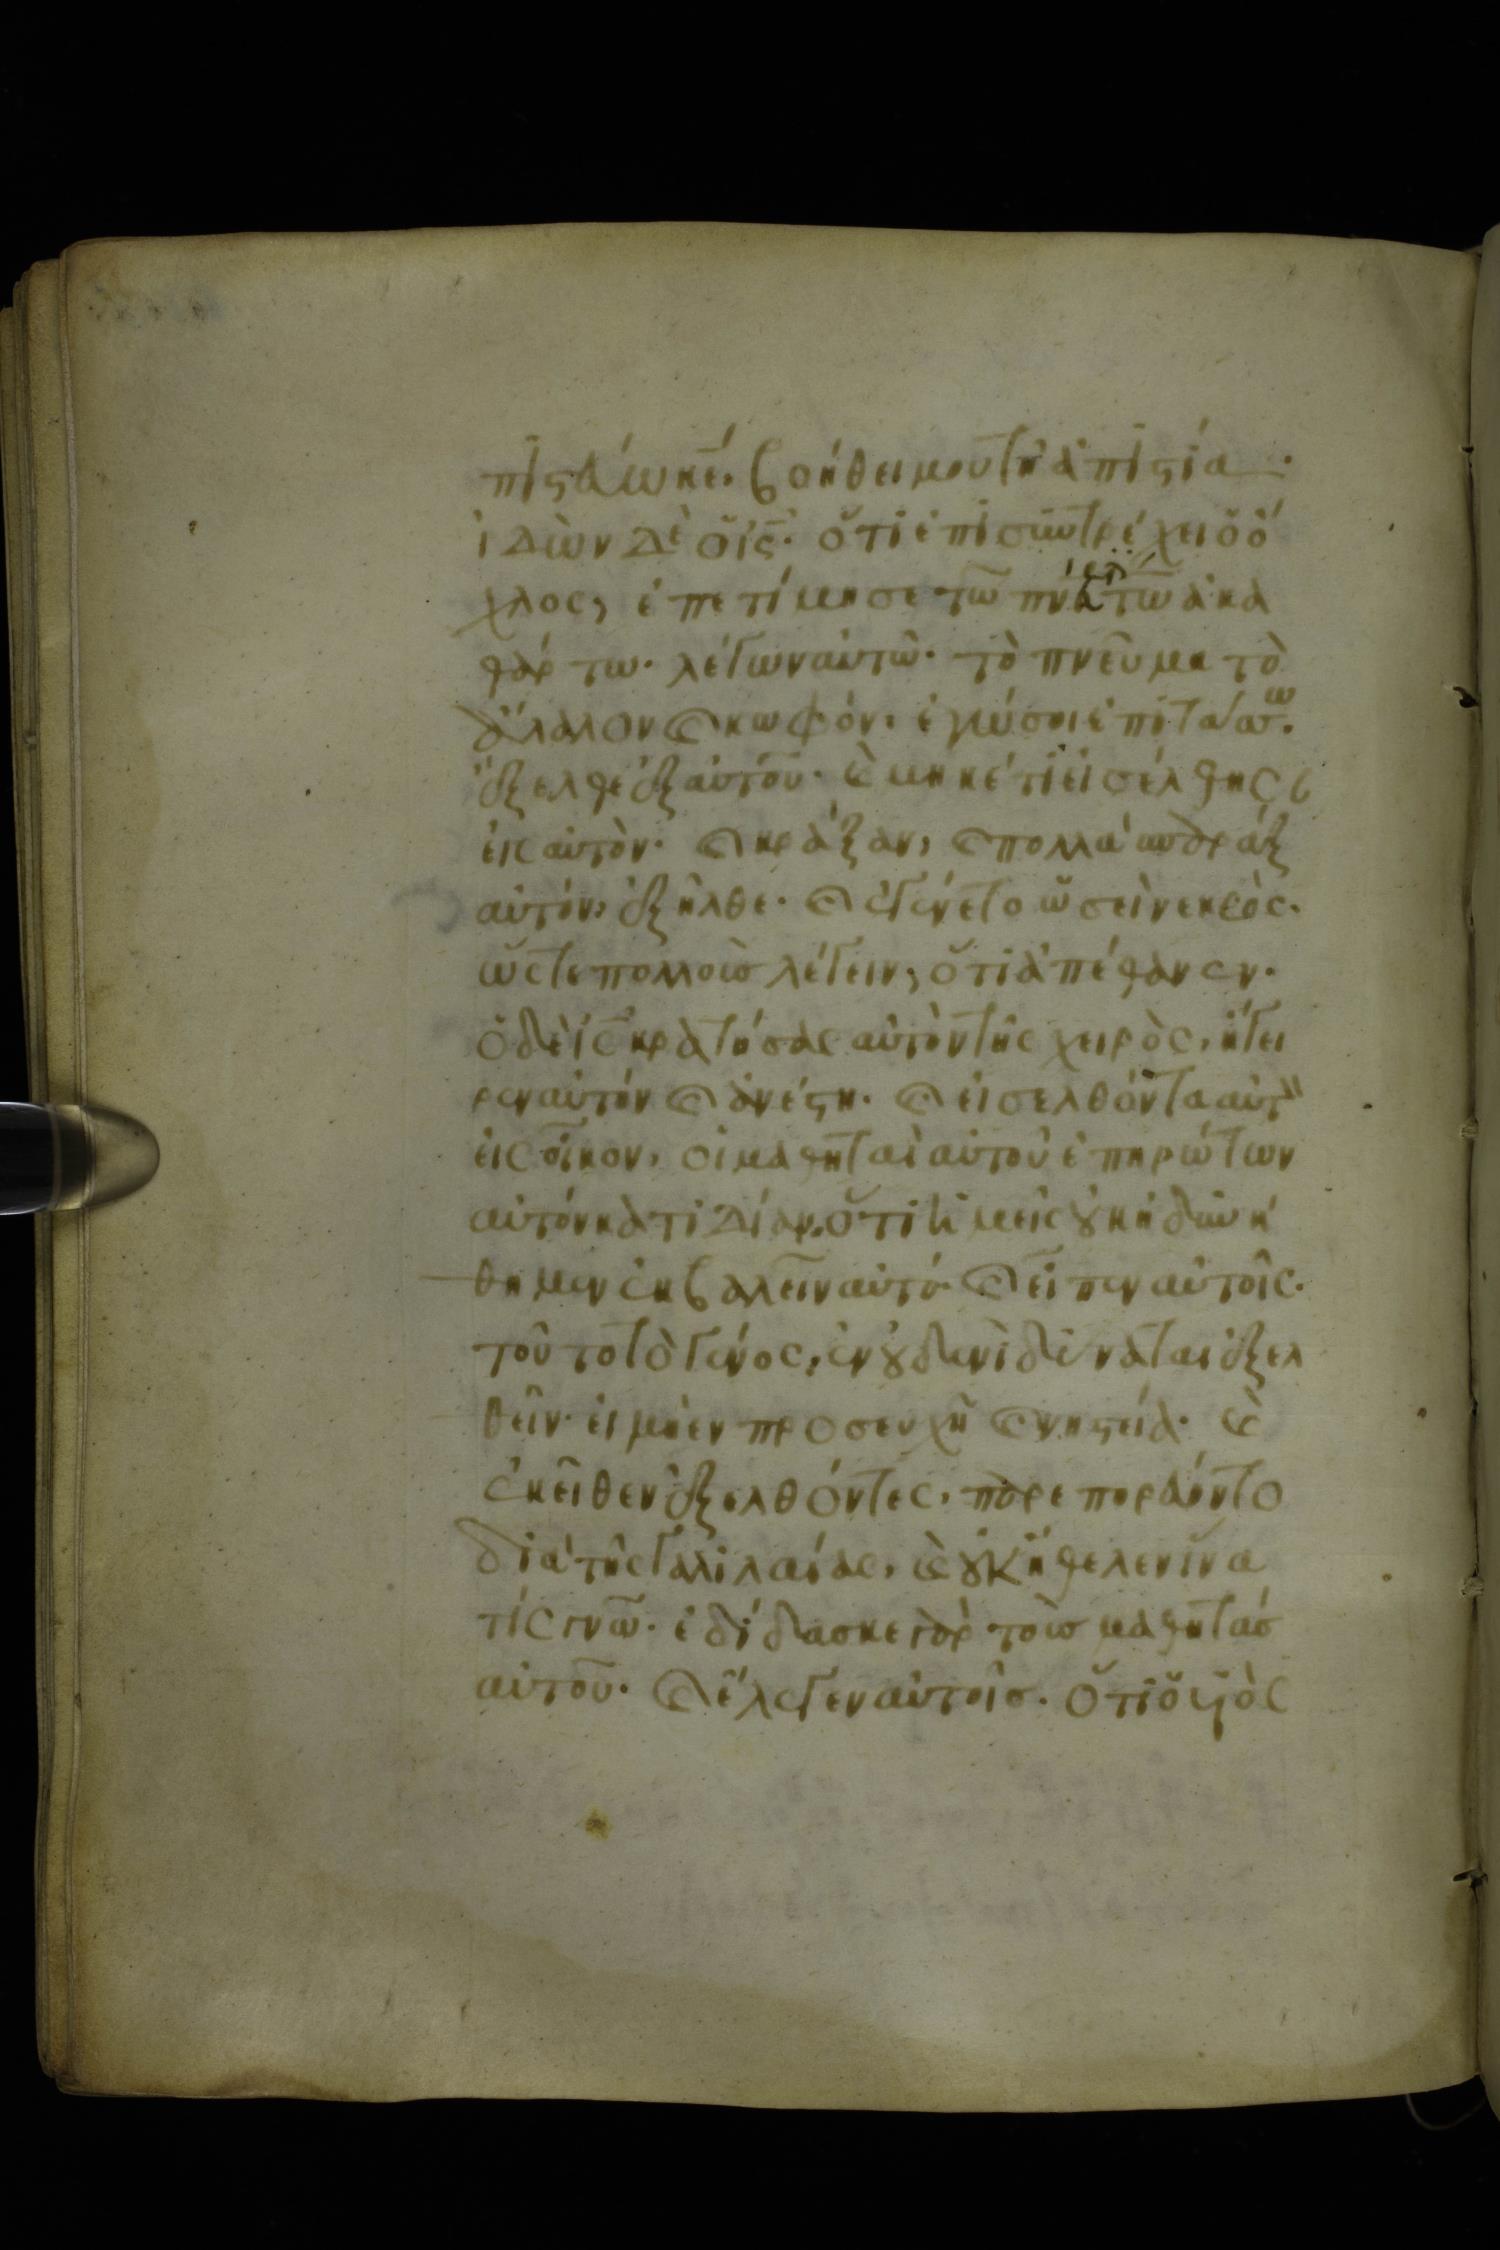 πιστεύω κε̄· βοήθει μου τῆ ἀπιστία·
ἰδὼν δὲ ὁ ις̄· ὅτι ἐπισυντρέχει ὁ ὄ
χλος, ἐπετίμησε τῶ πνατῶ ἀκα
θάρτω· λέγων αὐτῶ· τὸ πνεῦμα τὸ
ἄλαλον καὶ κωφόν· ἐγώ σοι ἐπιτάσσω·
ἔξελθε ἐξ αὐτοῦ· καὶ μηκέτι εἰσέλθης
εἰς αὐτόν· καὶ κράξαν, καὶ πολλὰ σπαράξαν
αὐτόν, ἐξῆλθε· καὶ ἐγένετο ὡσεὶ νεκρὸς·
ὥστε πολλοὺς λέγειν, ὅτι ἀπέθανεν·
ὁ δὲ ις̄ κρατήσας αὐτὸν τῆς χειρὸς, ἤγει
ρεν αὐτόν καὶ ἀνέστη· καὶ εἰσελθόντα αὐτὸν
εἰς οἶκον, οἱ μαθηταὶ αὐτοῦ ἐπηρώτων
αὐτόν κατιδίαν· ὅτι ἡμεῖς οὐκ ἠδυνή
θημεν ἐκβαλεῖν αὐτό· καὶ εἶπεν αὐτοῖς·
τοῦτο τὸ γένος, ἐν οὐδενὶ δύναται ἐξελ
θεῖν· εἰ μὴ ἐν προσευχῆ καὶ νηστεία· καὶ
ἐκεῖθεν ἐξελθόντες, παρεπορεύοντο
διὰ τῆς γαλιλαίας, καὶ οὐκ ἤθελεν ἵνα
τίς γνῶ· ἐδίδασκε γὰρ τοὺς μαθητὰς
αὐτοῦ· καὶ ἔλεγεν αὐτοῖς· ὅτι ὁ υἱὸς